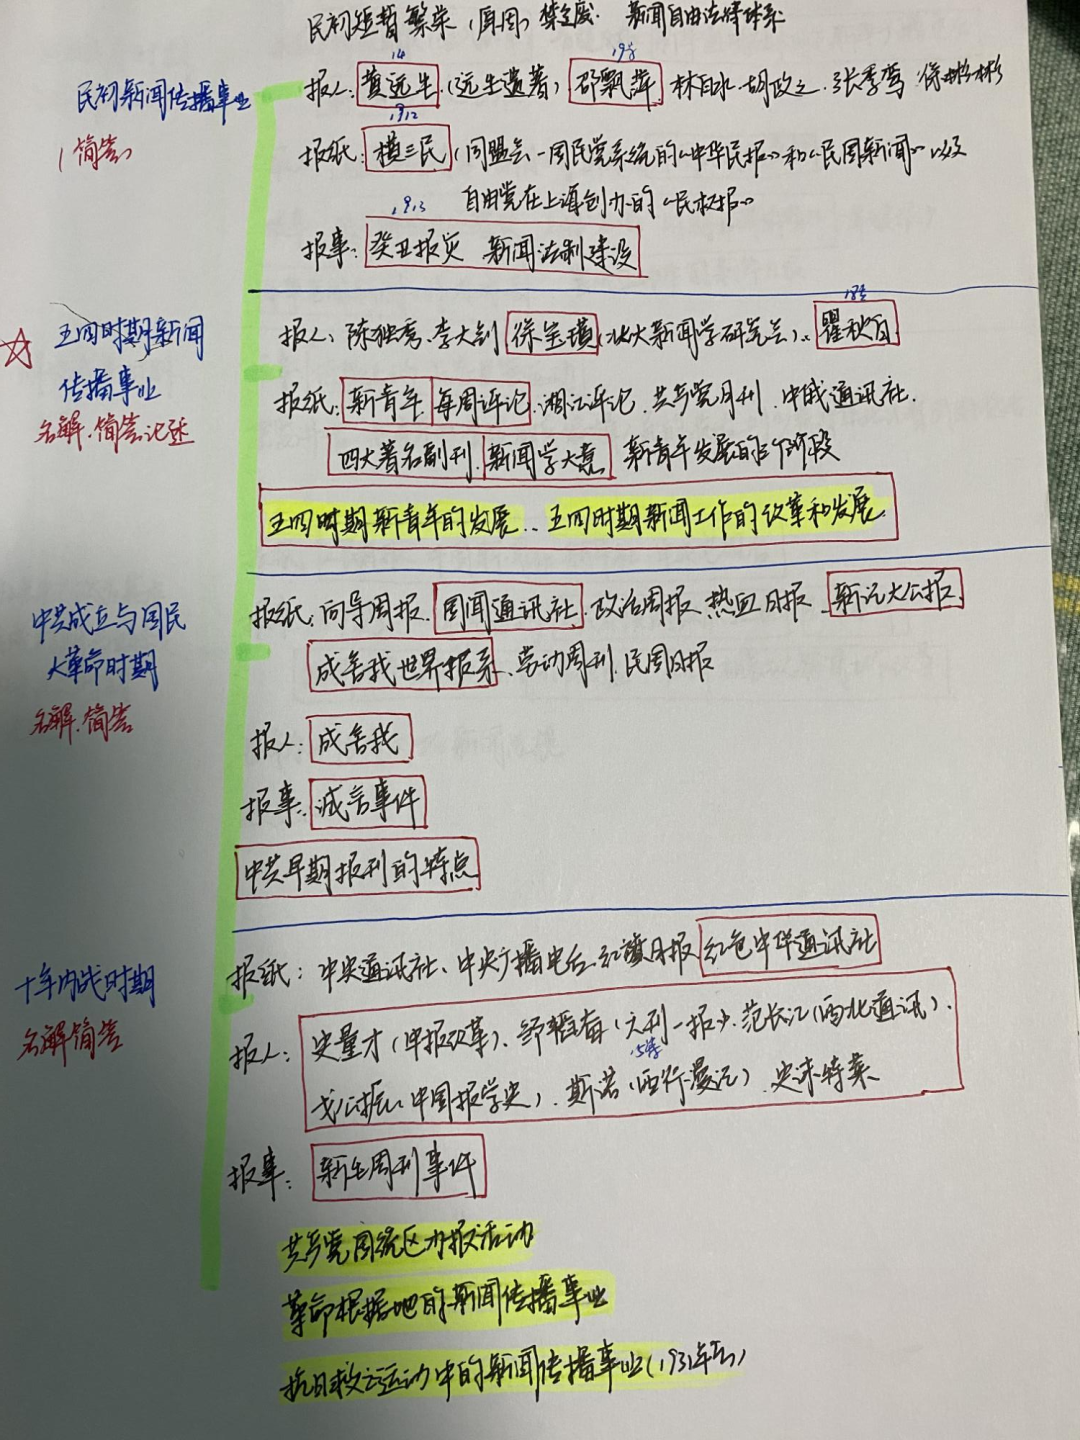 民初短暂繁荣（原因）禁之度. 新闻自由法律体系
14 19岁
民初新闻传播事业
（简答）
报人：黄远生.（远生遗著）邵飘萍 林白水. 胡政之. 张季鸾. 徐彬彬
1912
报纸：横三民（同盟会—国民党系统的《中华民报》和《民国新闻》以及
自由党在上海创办的《民权报》
1913
报事：癸丑报灾 新闻法制建设
五四时期新闻
传播事业
名解. 简答论述
报人：陈独秀. 李大钊 徐宝璜（北大新闻学研究会）、瞿秋白
报纸：新青年 每周评论. 湘江评论. 共产党月刊. 中俄通讯社.
四大著名副刊. 新闻学大意 新青年发展的三个阶段
五四时期新青年的发展.. 五四时期新闻工作的改革和发展.
中共成立与国民
大革命时期
名解. 简答
报纸：向导周报. 国闻通讯社. 政治周报. 热血日报. 新记大公报.
成舍我世界报系、劳动周刊. 民国日报
报人：成舍我
报事：诫言事件
中共早期报刊的特点
十年内战时期
名解简答
报纸：中央通讯社、中央广播电台. 红旗日报 红色中华通讯社
报人：史量才（申报改革）、邹韬奋（六刊一报）. 范长江（西北通讯）.
戈公振（中国报学史）. 斯诺（西行漫记） 史沫特莱
报事：新生周刊事件
共产党国统区办报活动
革命根据地的新闻传播事业
抗日救亡运动中的新闻传播事业（1931年后）